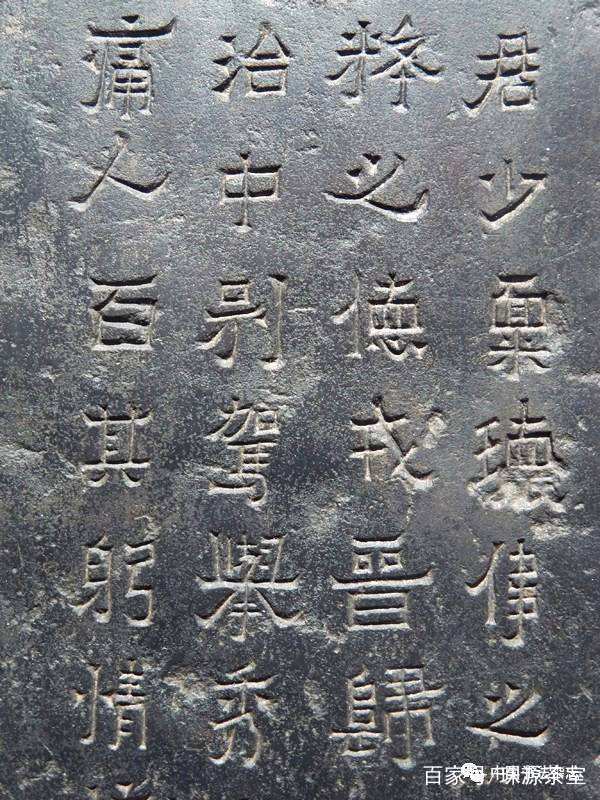 君少稟瓌偉之
粹之德戎晉歸
治中別駕舉秀
痛人百其躬情
百家号/源茶室